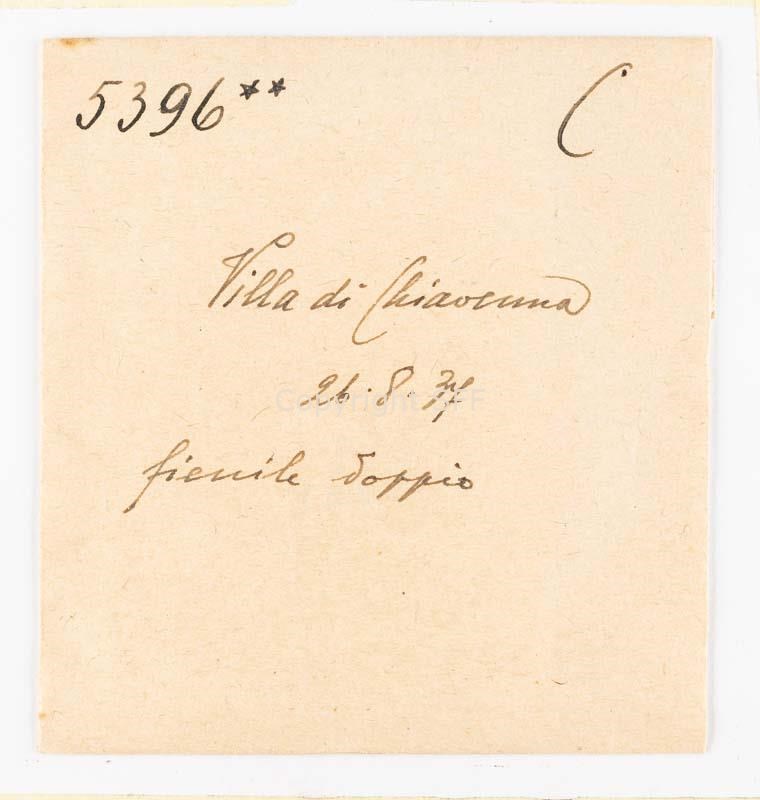 5396** C
Villa di Chiavenna
26.8.37
fienile doppio